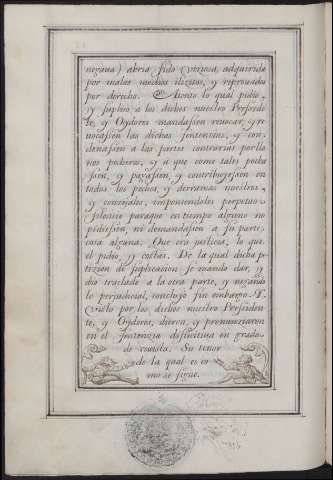 nozana) abria sido viziosa, adquirida
por malos medios ilizitos, y reprouados
por derecho. Atento lo qual pidio,
y suplico a los dichos nuestro Persiden
te, y Oydores mandassen reuocar, y re
uocassen las dichas sentenzias, y con
denassen a las partes contrarias por lla
nos pecheros, y a que como tales pecha
ssen, y pagassen, y contribuyessen en
todos los pechos, y derramas nuestras,
y conzejales, imponiendoles perpetuo
silenzio paraque en tiempo alguno no
pidiessen, ni demandassen a su parte,
cosa alguna. Que era justicia, lo que
el pidio, y costas. De la qual dicha pe
tizion de suplicazion se mando dar, y
dio traslado a la otra parte, y negando
lo perjudicial, concluyo sin embargo. Y
visto por los dichos nuestro Persiden
te, y Oydores, dieron, y pronunziaron
en el sentenzia difinitiua en grado
de reuista. Su tenor
de la qual es co
mo se sigue.